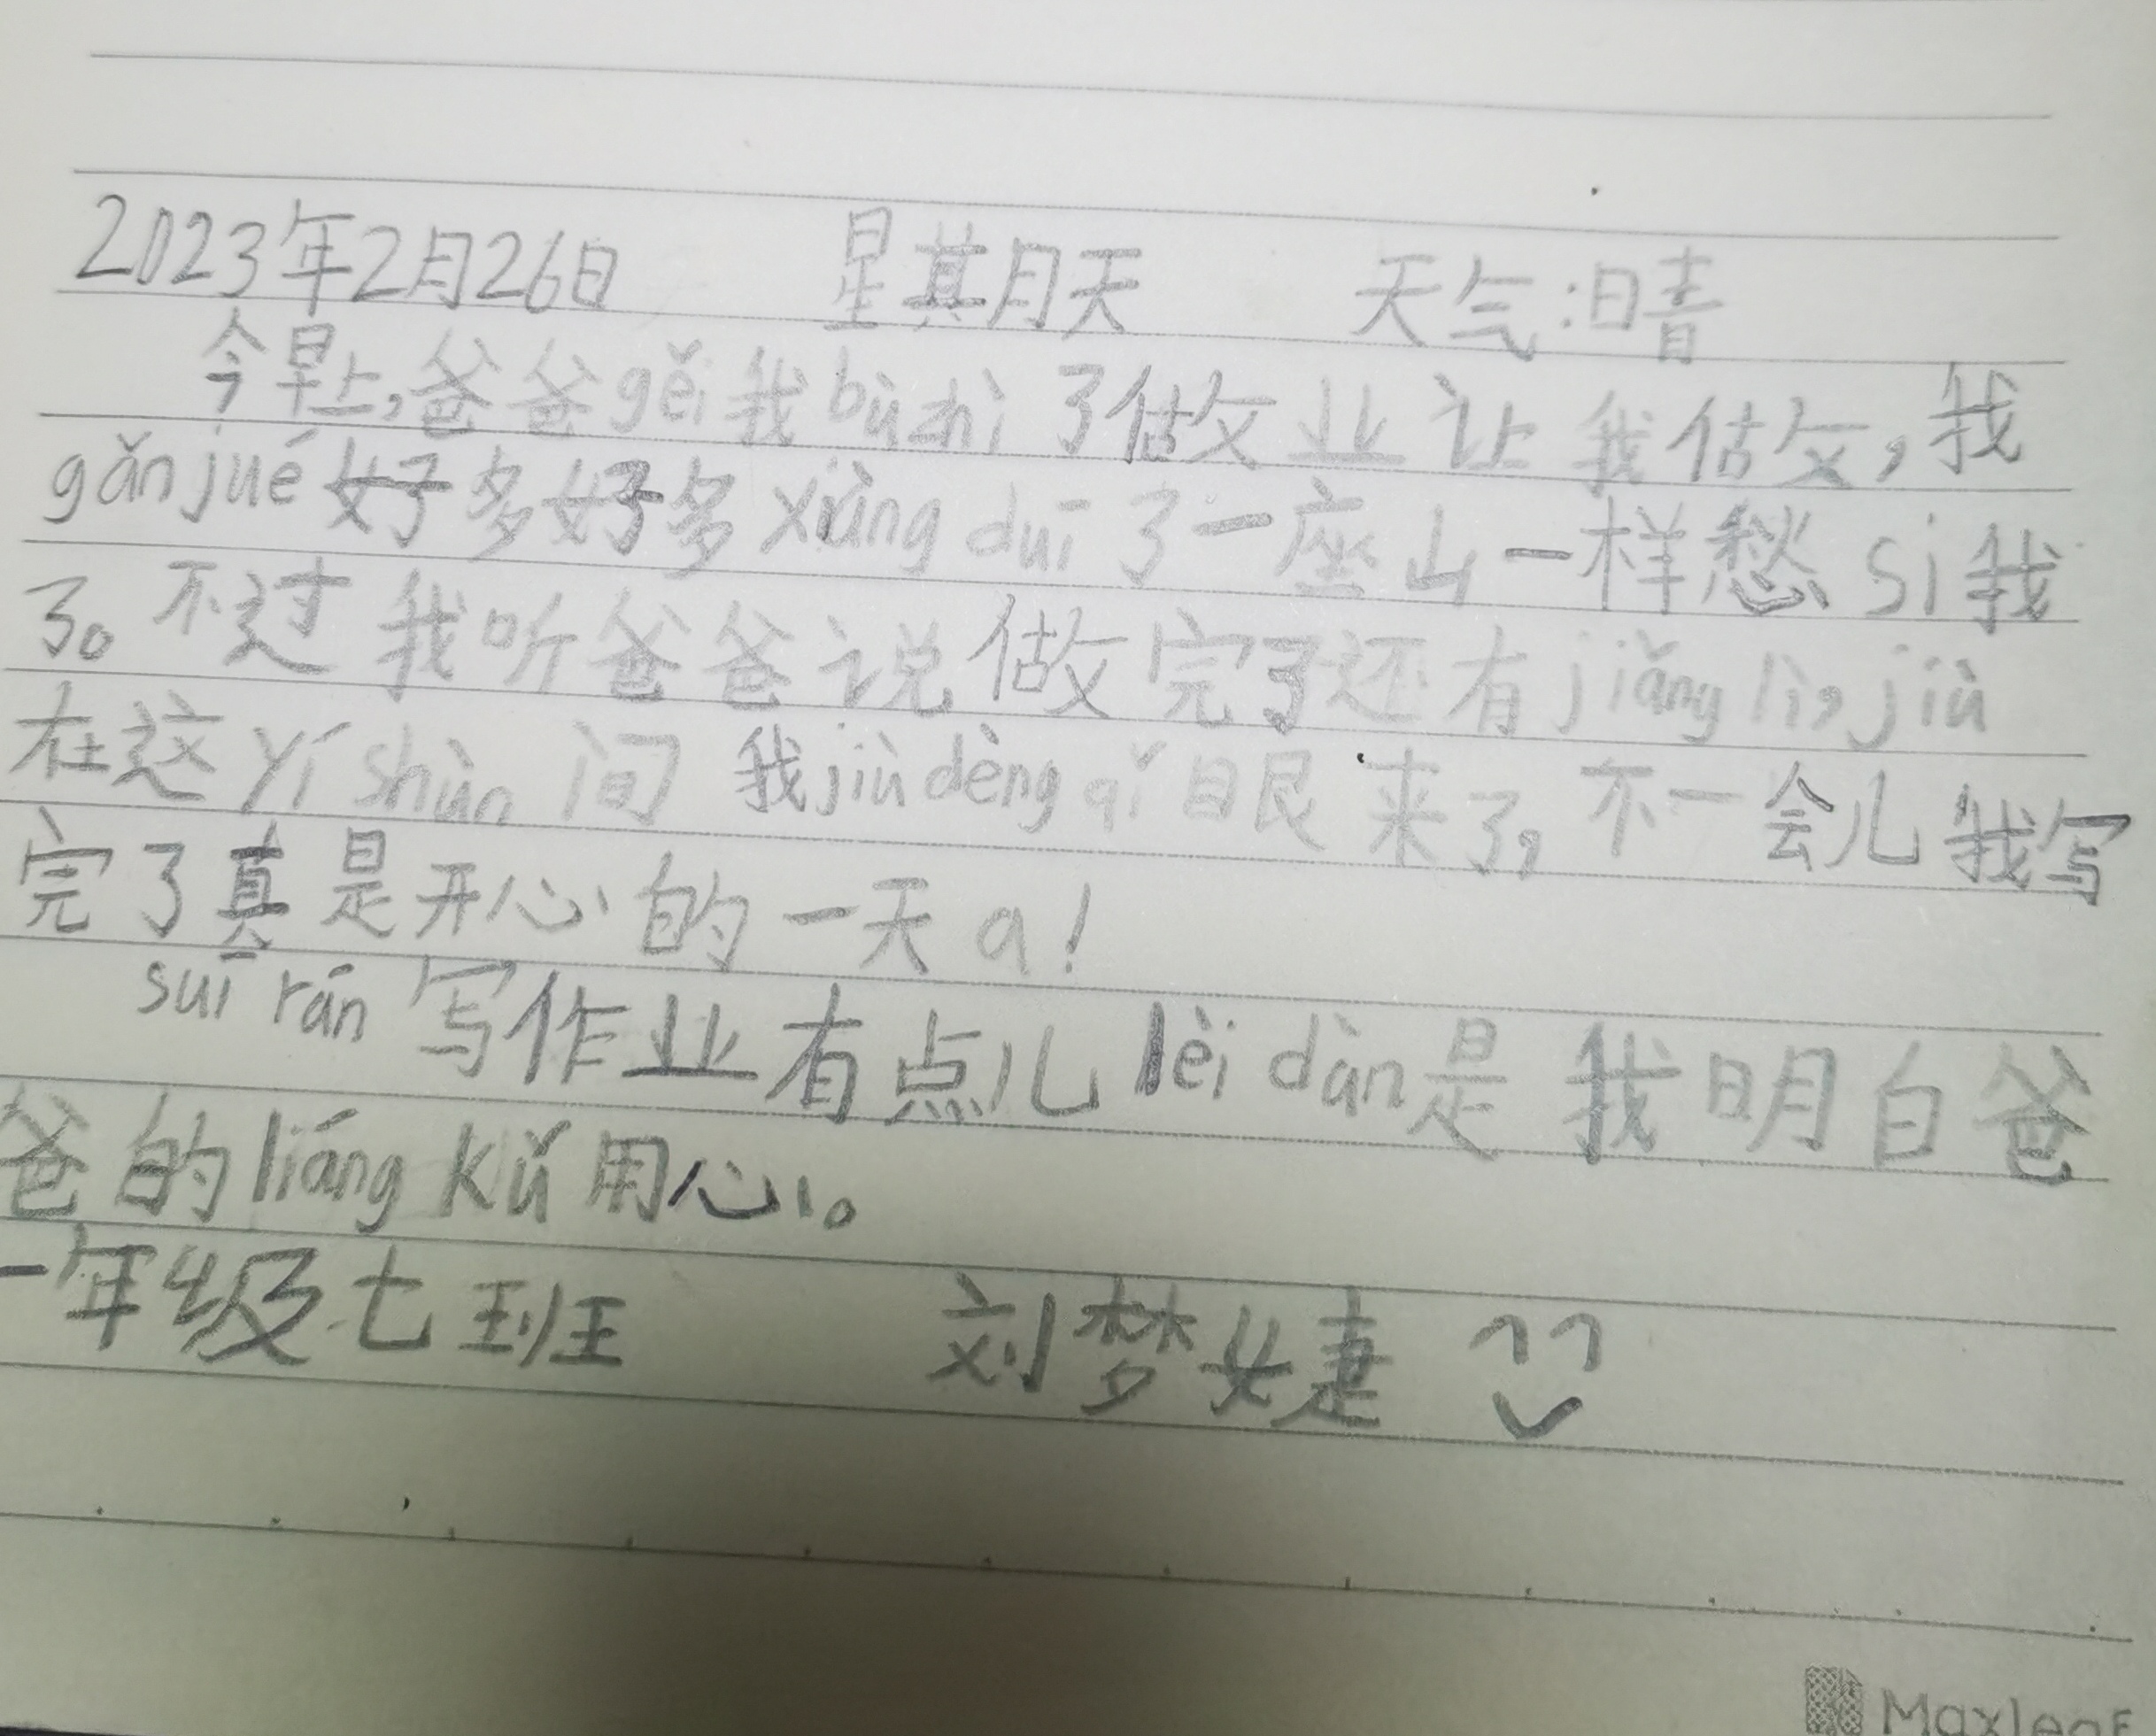 2023年2月26日 星期天 天气:晴
今早上,爸爸gěi我bùzhì了做业让我做,我
gǎnjué好多好多xiàng duī了一座山一样愁sǐ我
了。不过我听爸爸说做完了还有jiǎng lì,jiù
在这yí shùn间 我jiù dèng qǐ眼来了,不一会儿我写
完了真是开心的一天a!
suī rán写作业有点儿lèi dàn是我明白爸
爸的liáng kǔ用心。
一年级七班 刘梦婕
Maxleaf